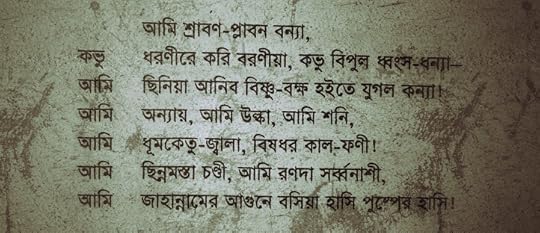 আমি শ্রাবণ-প্লাবন বন্যা,
কভু ধরণীরে করি বরণীয়া, কভু বিপুল ধ্বংস-ধন্যা—
আমি ছিনিয়া আনিব বিষ্ণু-বক্ষ হইতে যুগল কন্যা!
আমি অন্যায়, আমি উল্কা, আমি শনি,
আমি ধূমকেতু-জ্বালা, বিষধর কাল-ফণী!
আমি ছিন্নমস্তা চণ্ডী, আমি রণদা সর্ব্বনাশী,
আমি জাহান্নামের আগুনে বসিয়া হাসি পুষ্পের হাসি!